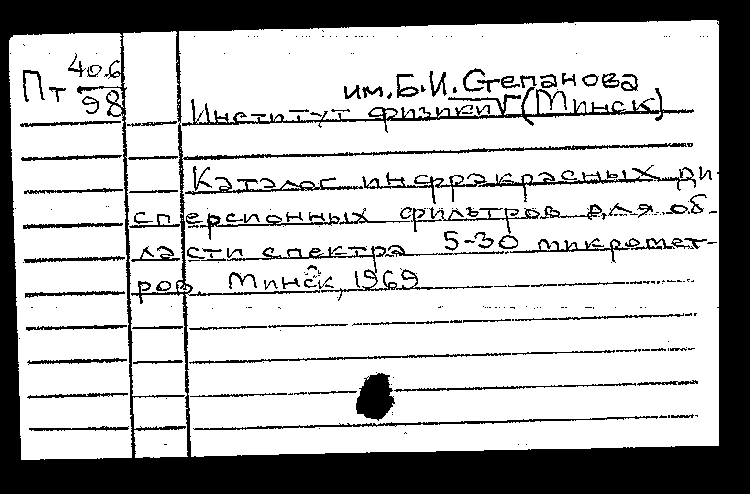 Пт 40.6
98
им. Б.И. Степанова
Институт физики (Минск)
Каталог инфракрасных ди-
сперсионных фильтров для об-
ласти спектра 5-30 микромет-
ров. Минск, 1969